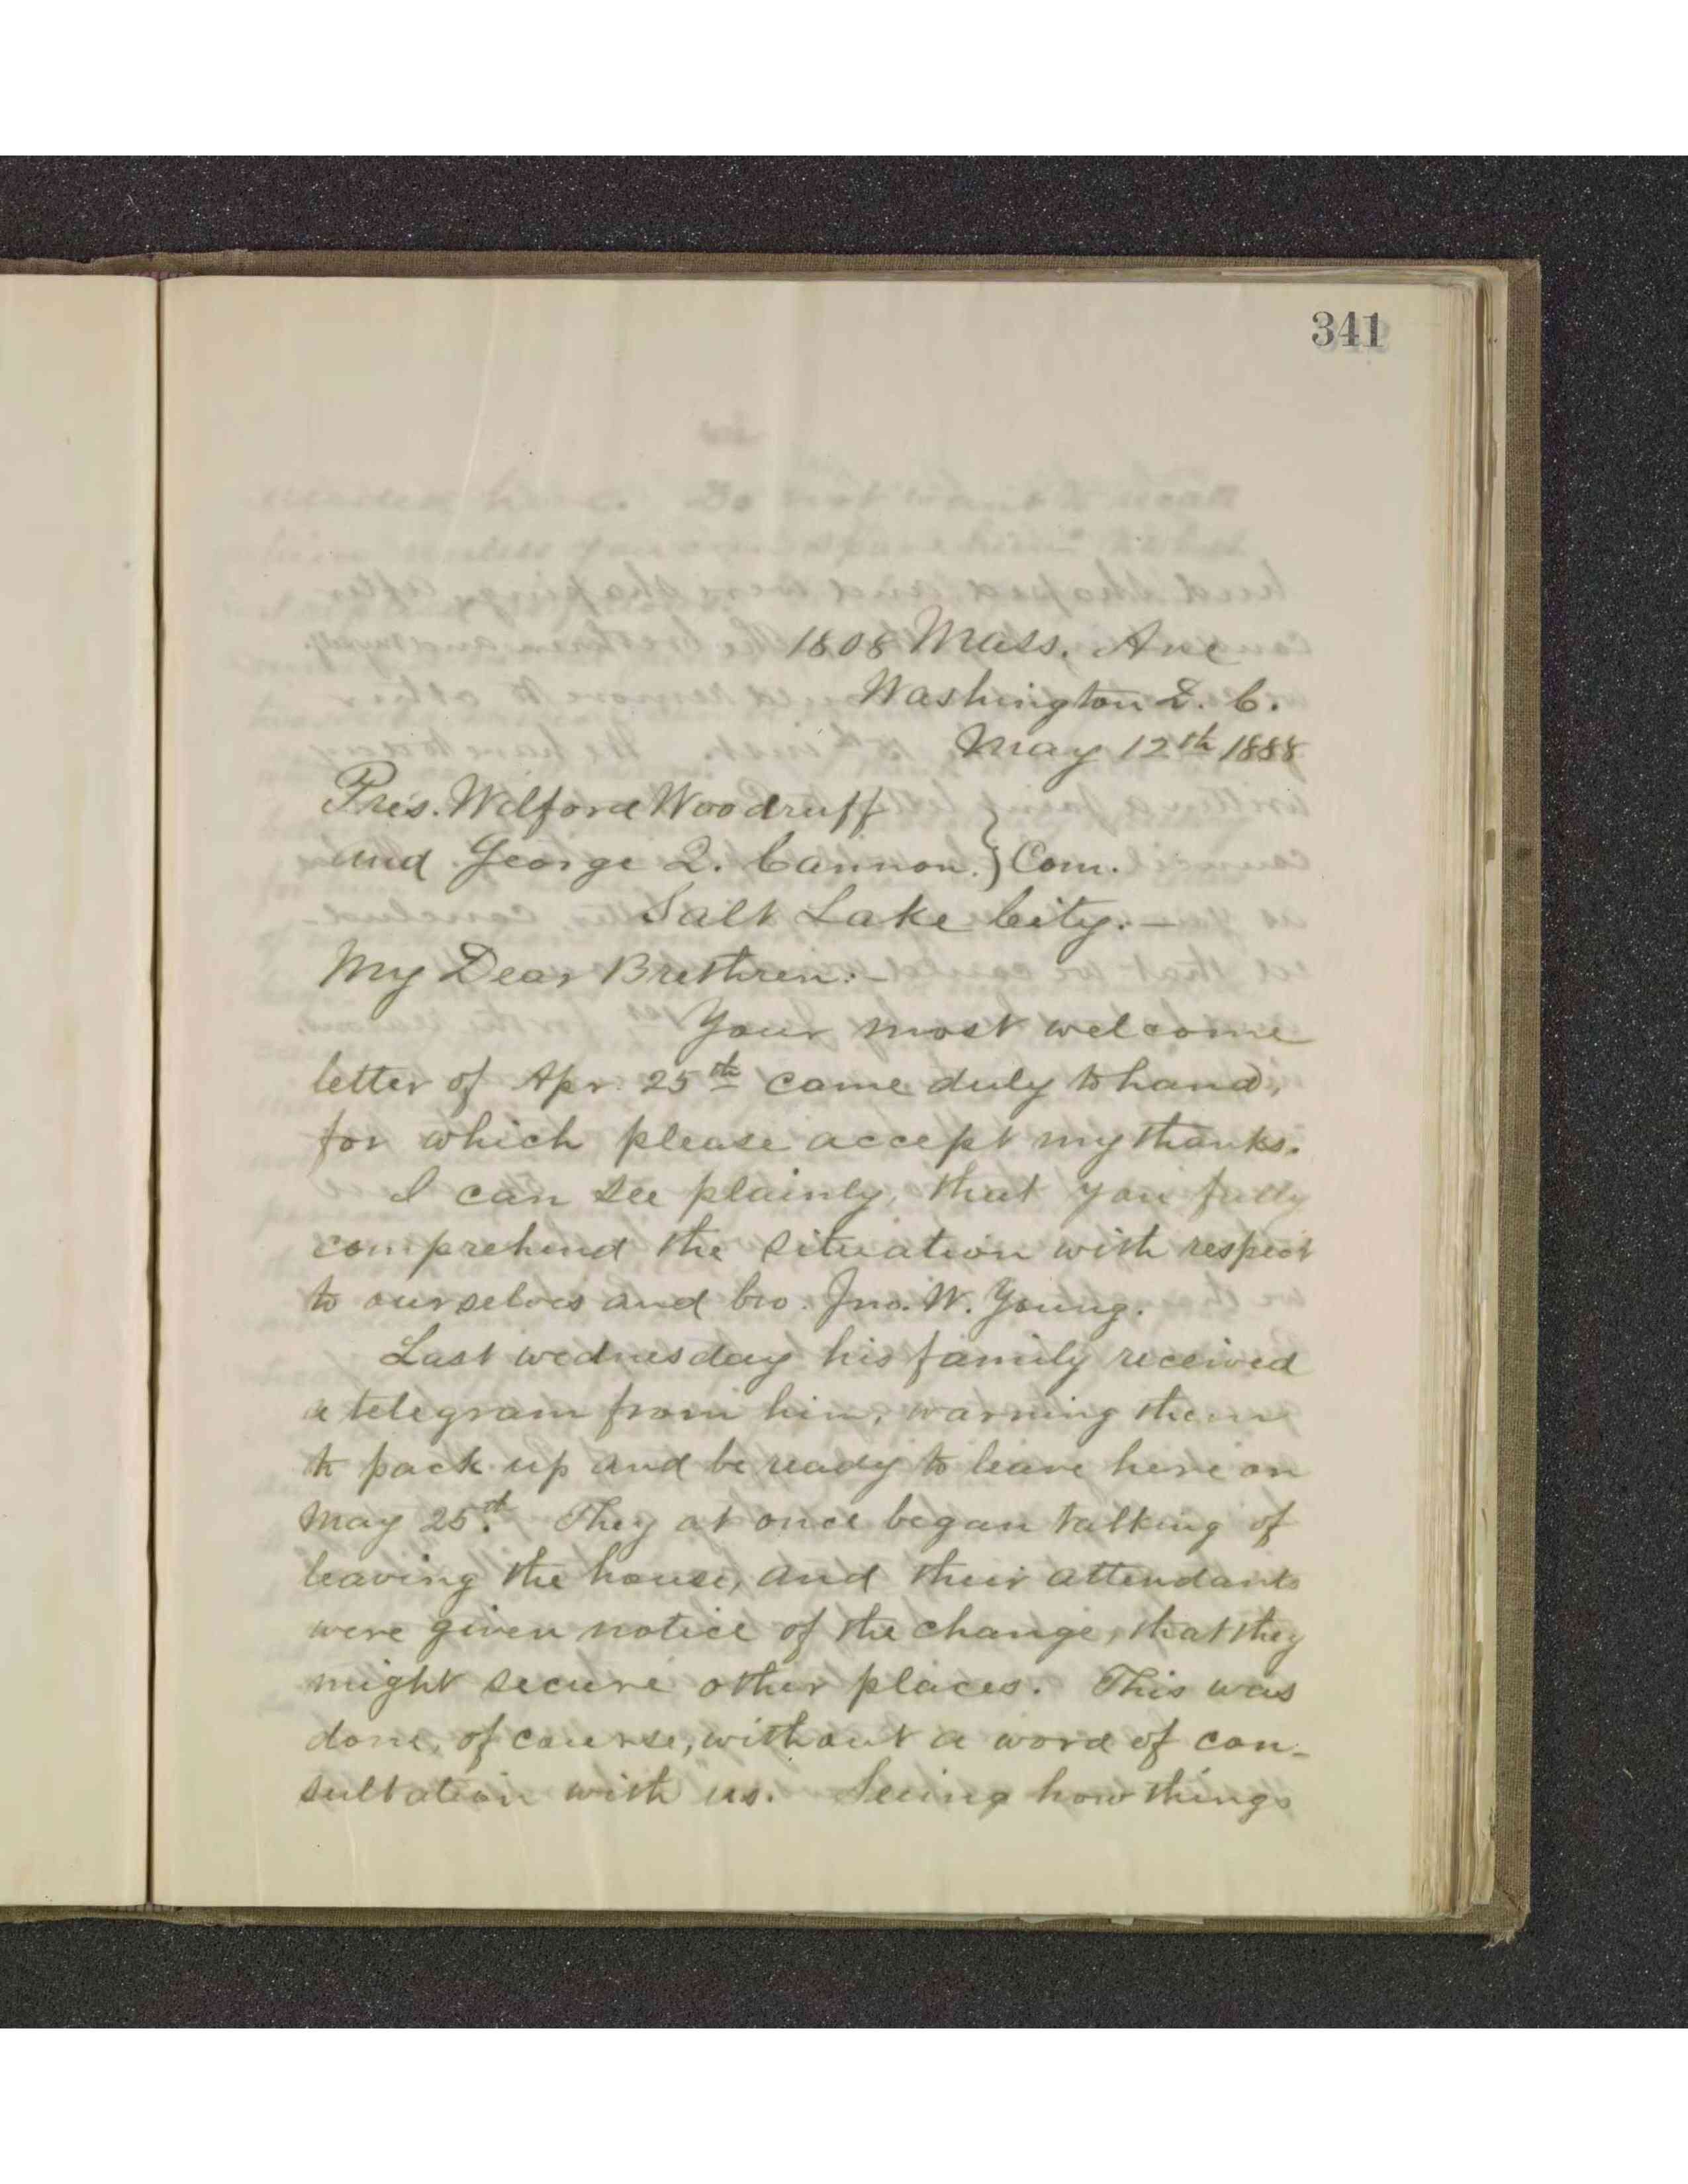 341
1808 Mass. Ave
Washington D. C.
May 12th 1888
Pres. Wilford Woodruff
and George Q. Cannon. } Com.
Salt Lake City. —
My Dear Brethren: —
Your most welcome
letter of Apr. 25th came duly to hand,
for which please accept my thanks.
I can see plainly, that you fully
comprehend the situation with respect
to ourselves and bro. Jno. W. Young.
Last wednesday his family received
a telegram from him, warning them
to pack up and be ready to leave here on
May 25th. They at once began talking of
leaving the house, and their attendants
were given notice of the change, that they
might secure other places. This was
done, of course, without a word of con-
sultation with us. Seeing how things